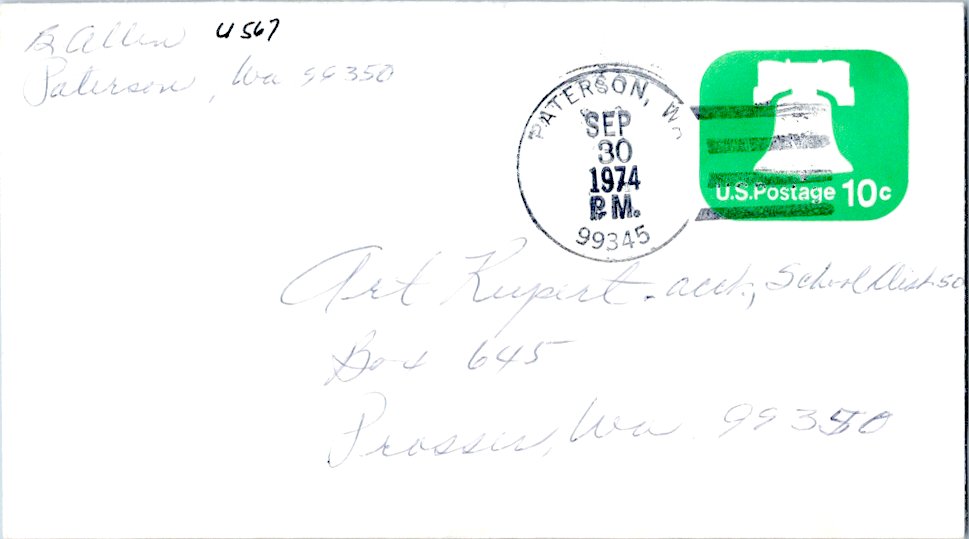 B Allen U567
Paterson, Wa 99350
PATERSON, Wa
SEP
30
1974
P.M.
99345
U.S.Postage 10c
Art Rupert - acct, School Dist 50
Box 645
Prosser, Wa 99350